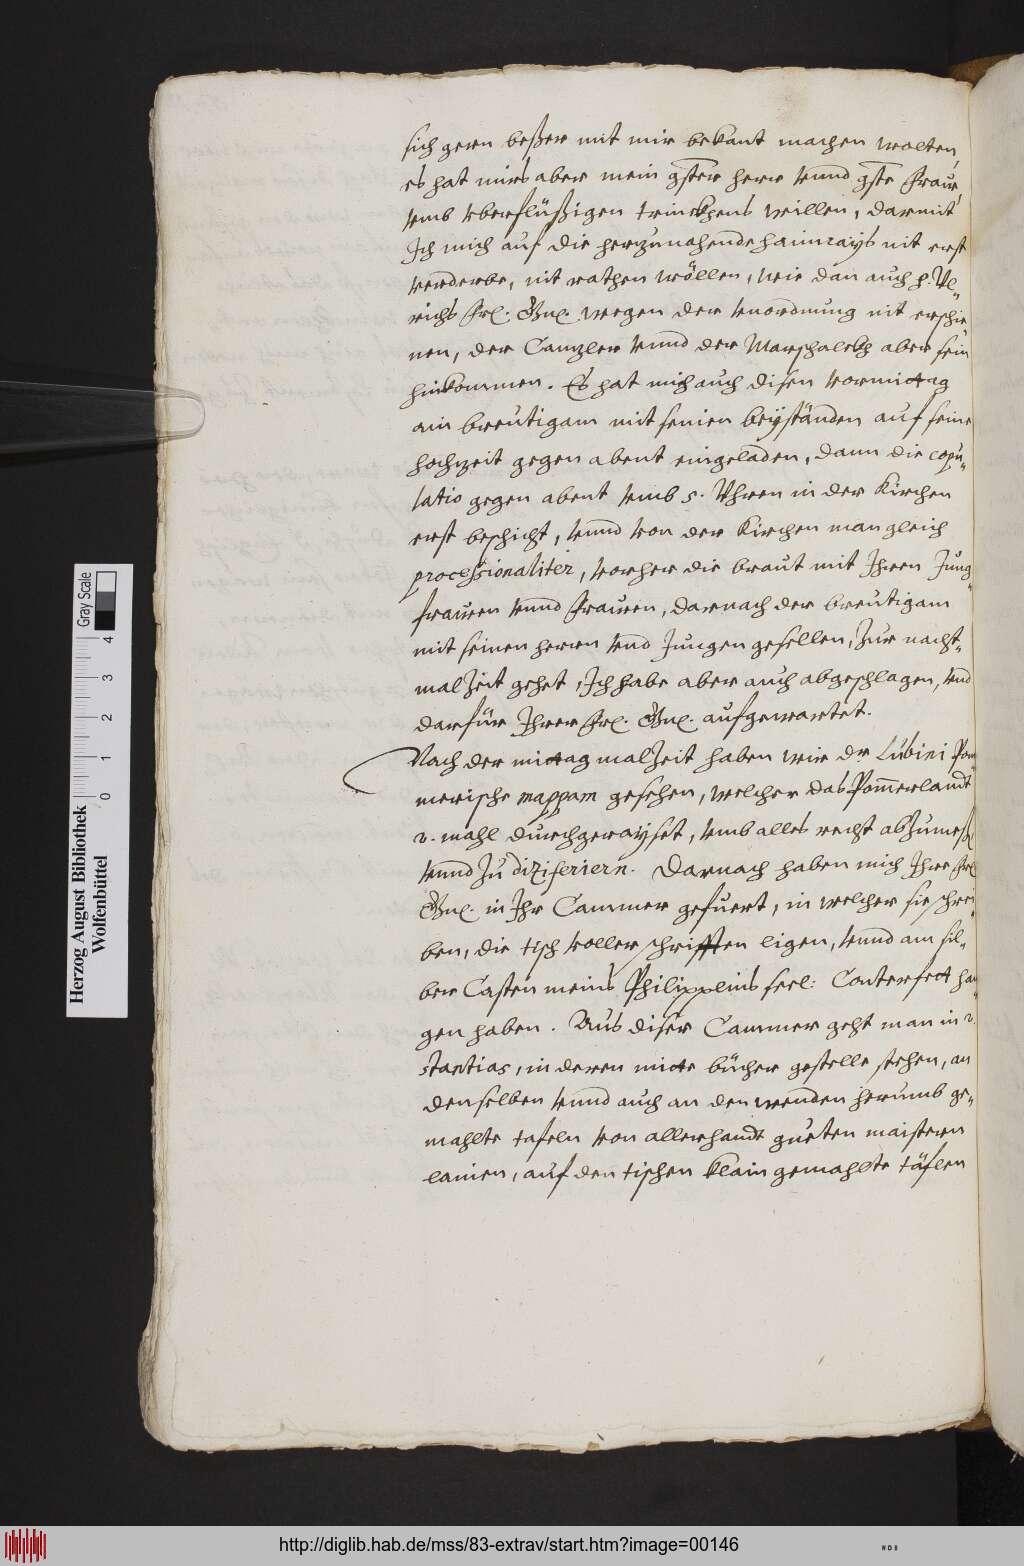 sich gern beßer mit mir bekant machen wolten,
es hat mirs aber mein gster herr vnnd gste Fraw,
vmb vberflüßigen trinckhens willen, darmit
Ich mich auf die herzunahende haimrays nit erst
verderbe, nit rathen wöllen, wie dan auch h. Vl„
richs Frl. Gnl. wegen der vnordnung nit erschie„
nen, der Canzler vnnd der Marschalckh aber sein
hinkommen. Es hat mich auch disen vormittag
ain breutigam mit seinen beyständen auf seine
hochzeit gegen abent eingeladen, dann die copu„
latio gegen abent vmb 5. Vhren in der Kirchen
erst beschicht, vnnd von der Kirchen man gleich
processionaliter, vorher die braut mit Ihren Jung„
frawen vnnd Frawen, darnach der breutigam
mit seinen herren vnd Jungen gesellen, zur nacht„
malzeit gehet, Ich habe aber auch abgeschlagen, vnd
darfür Ihrer Frl. Gnl. aufgewartet.
Nach der mittag malzeit haben wir dr Lubini Pom„
merische mappam gesehen, welcher das Pom̄erlandt
2. mahl durchgerayset, vmb alles recht abzumeßen
vnnd zu diziferiern. Darnach haben mich Ihre Frl
Gnl. in Ihr Cammer gefuert, in welcher sie schrei„
ben, die tisch voller schrifften ligen, vnnd am sil„
ber Casten meins Philipplins seel: Conterfect han„
gen haben. Aus diser Cammer geht man in 2.
stantias, in deren mitte bücher gestelle stehen, an
denselben vnnd auch an den wenden herumb ge„
mahlte tafeln von allerhandt gueten maistern
lainen, auf den tischen klain gemahlte täflen
Herzog August Bibliothek
Wolfenbüttel
Gray Scale
0 1 2 3 4
http://diglib.hab.de/mss/83-extrav/start.htm?image=00146